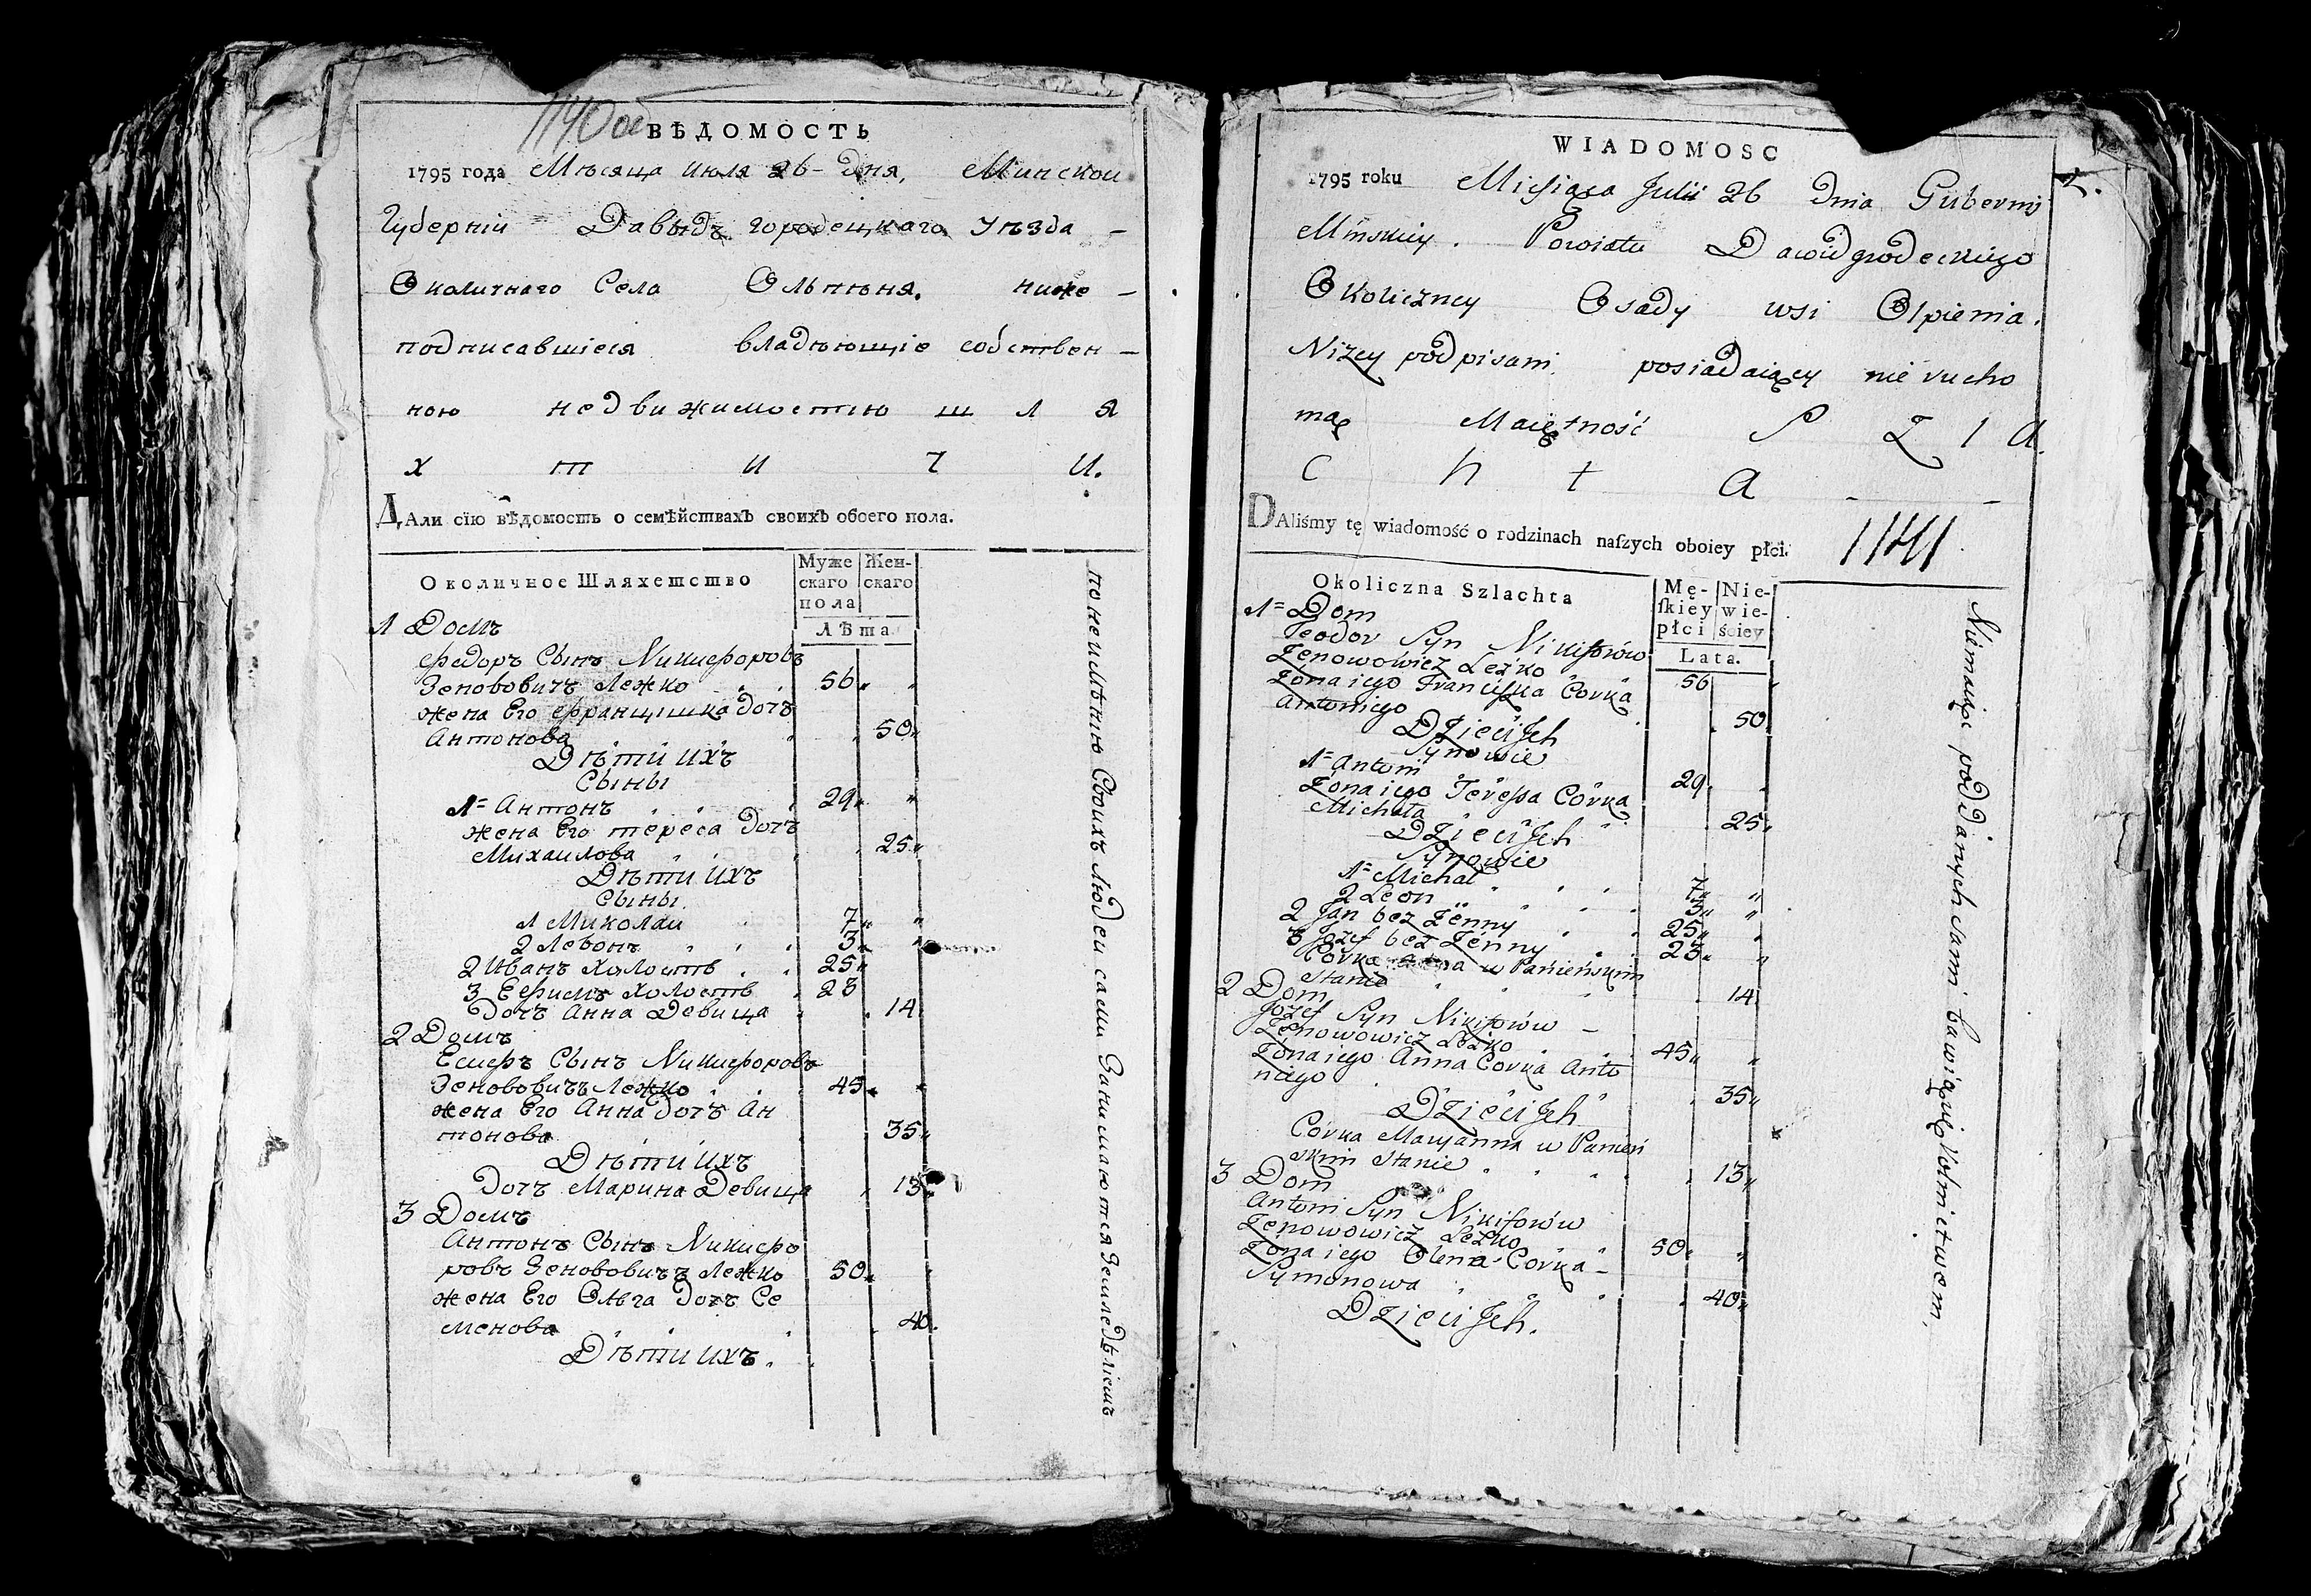 1140 об
ВѢДОМОСТЬ
1795 года Мѣсяца Июля 26- дня, Минскои
Губерніи Давыдъ городецкаго уѣзда -
Околичнаго Села Ольпѣня. ниже -
подписавшіеся владѣющіе собствен -
ною недвижимостію ш л я
х т и ч и.
ДАли сїю вѣдомость о семѣйствахъ своихъ обоего пола.
Околичное Шляхетство
Муже
скаго
пола
Жен-
скаго
Лѣта
1 Домъ
Федоръ Сынъ Никифоровъ
Зенововичъ Лежко 56
жена Его Францишка Дочъ
Антонова 50
Дѣти ихъ
Сыны
1= Антонъ 29
жена Его Тереса Дочъ
Михаилова 25
Дѣти ихъ
Сыны
1 Миколаи 7
2 Левонъ 3
2 Иванъ Холостъ 25
3 Есифъ Холостъ 23
Дочъ Анна Девица 14
2 Домъ
Есифъ Сынъ Никифоровъ
Зенововичъ Лежко 45
жена Его Анна Дочъ Ан
тонова 35
Дѣти ихъ
Дочъ Марина Девица 13
3 Домъ
Антонъ Сынъ Никифо
ровъ Зенововичъ Лежко 50
жена Его Ольга Дочъ Се
менова 40
Дѣти ихъ.
по неимѣнію Своихъ людеи сами Занимаются Земледѣліемъ
2.
WIADOMOSC
1795 roku Miesiąca Julii 26 Dnia Guberny
Minskiey. Powiatu Dawidgrodeckiego
Okoliczney Osady wsi Olpienia.
Nizey podpisani posiadaiący nie rucho
mą Maiętność S Z l a
c h t a -
DAliśmy tę wiadomość o rodzinach naſzych oboiey płci.
1141
Okoliczna Szlachta
Mę-
ſkiey
płci
Nie-
wie-
ściey
Lata.
1= Dom
Teodor Syn Nikiforów
Zenowowicz Leżko 56
Żona iego Franciszka Córka
Antoniego 50
Dzieci Jch
Synowie
1= Antoni 29
Żona iego Teressa Córka
Michała 25
Dzieci Jch
Synowie
1= Michał 7
2 Leon 3
2 Jan bez Żenny 25
3 Jozef bez Żenny 23
Córka Anna w Panieńskim
Stanie 14
2 Dom
Jozef Syn Nikiforów -
Zenowowicz Leżko 45
Żona iego Anna Corka Anto
niego 35
Dzieci Jch
Córka Maryanna w Panień
skim Stanie 13
3 Dom
Antoni Syn Nikiforów
Zenowowicz Leżko 50
Żona iego Olena Córka -
Symonowa 40
Dzieci Jch.
Niemaiąc poddanych sami bawią się Rolnictwem